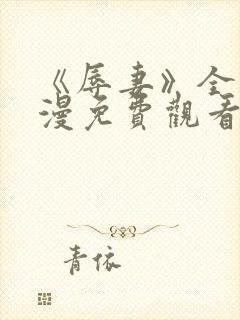 《辱妻》全
漫免費觀看
青依